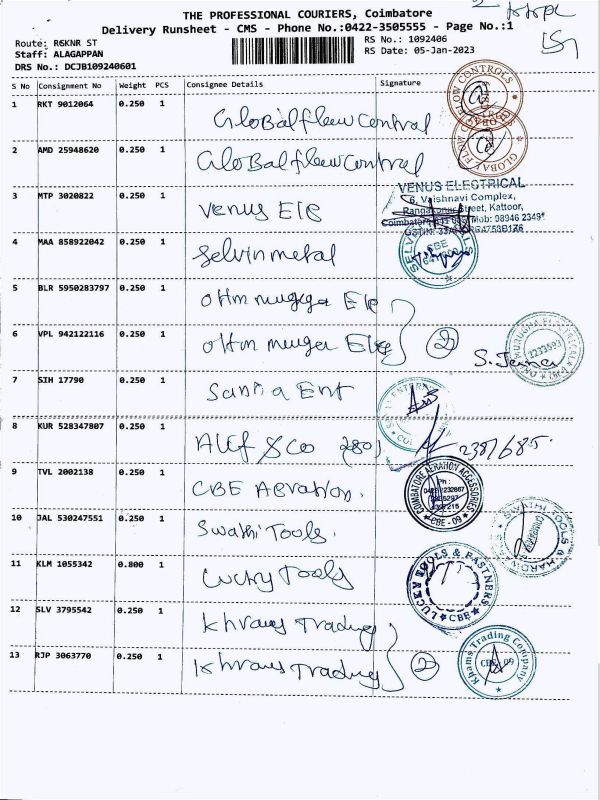 THE PROFESSIONAL COURIERS, Coimbatore
Delivery Runsheet - CMS - Phone No.:0422-3505555 - Page No.:1
Route: R6KNR ST
RS No.: 1092406
Staff: ALAGAPPAN
RS Date: 05-Jan-2023
DRS No.: DCJB109240601
S No Consignment No Weight PCS Consignee Details Signature
1 RKT 9012064 0.250 1 Global flow Control
2 AMD 25948620 0.250 1 Global flow Control
VENUS ELECTRICAL
6, Vaishnavi Complex,
3 MTP 3020822 0.250 1 Venus Ele
Street, Kattoor,
Mob: 98946 2349
4 MAA 858922042 0.250 1 Selvin metal
CBE
5 BLR 5950283797 0.250 1 Ohm muruga Ele
6 VPL 942122116 0.250 1 Ohm muruga Ele 2
7 SIH 17790 0.250 1 Ent
8 KUR 528347807 0.250 1 Alif & Co
9 TVL 2002138 0.250 1 CBE Aeration.
COIMBATORE AERATION ACCESSORIES
Ph :
CBE - 09
10 JAL 530247551 0.250 1 Swathi Tools.
11 KLM 1055342 0.800 1 Lucky Tools
TOOLS & FASTNERS
CBE
12 SLV 3795542 0.250 1 Khrams Trading
13 RJP 3063770 0.250 1 Khrams Trading 2
Khams Trading Company
CBE 09